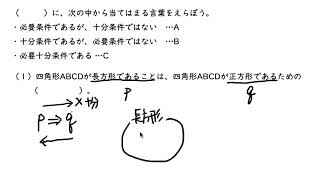 （　　　）に、次の中から当てはまる言葉をえらぼう。
・必要条件であるが、十分条件ではない　…A
・十分条件であるが、必要条件ではない　…B
・必要十分条件である …C
（１）四角形ABCDが長方形であることは、四角形ABCDが正方形であるための
（　　　　　）。
p
q
×十分
p⇒q
長方形